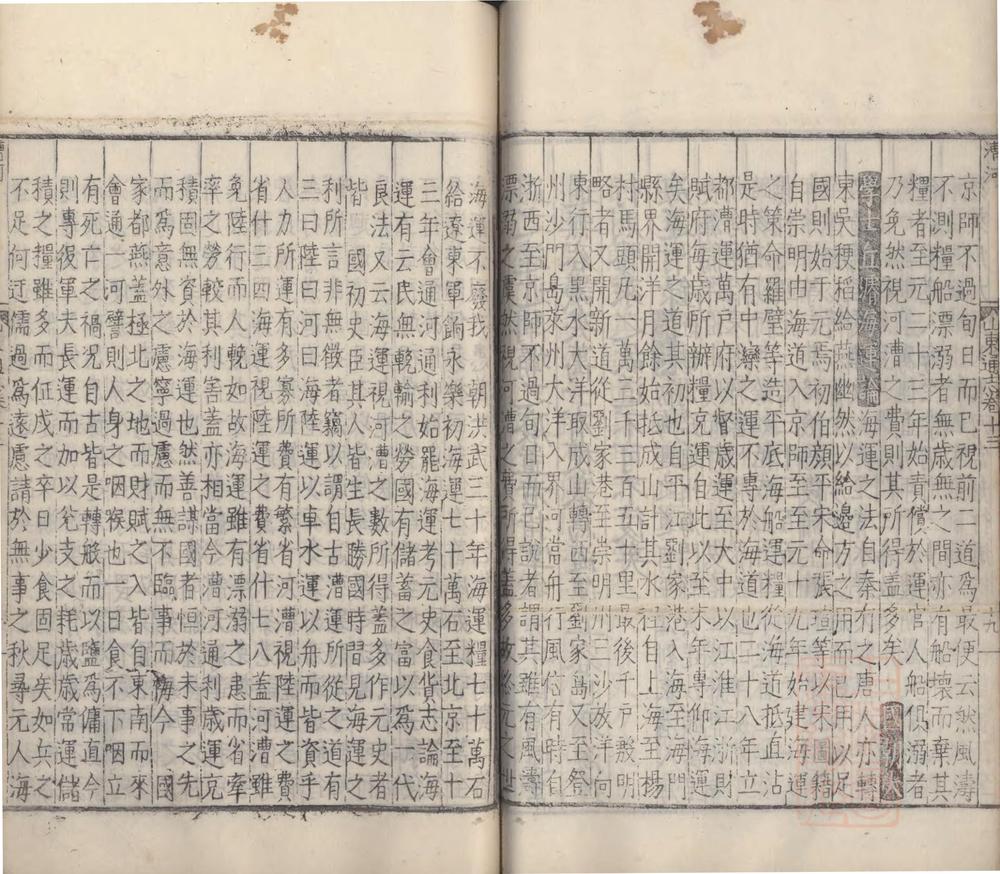 漕河
山東通志卷十三
九
京師不過旬日而已視前二道爲最便云然風濤
不測糧船漂溺者無歲無之間亦有船壞而棄其
糧者至元二十三年始責償於運官人船俱溺者
乃免然視河漕之費則其所得蓋多矣國朝大
學士丘濬海運論海運之法自秦有之唐人亦轉
東吳稉稻給燕幽然以給邊方之用而已用以足
國則始于元焉初伯顏平宋命張瑄等以宋圖籍
自崇明由海道入京師至至元十九年始建海運
之策命羅璧等造平底海船運糧從海道抵直沽
是時猶有中灤之運不專於海道也二十八年立
都漕運萬戶府以督歲運至大中以江淮江浙財
賦府每歲所辦糧充運自此以至末年專仰海運
矣海運之道其初也自平江劉家港入海至海門
縣界開洋月餘始抵成山計其水程自上海至揚
村馬頭凡一萬三千三百五十里最後千戶殷明
略者又開新道從劉家港至崇明州三沙放洋向
東行入黑水大洋取成山轉西至劉家島又至登
州沙門島萊州大洋入界河當舟行風信有時自
浙西至京師不過旬日而已說者謂其雖有風濤
漂溺之虞然視河漕之費所得蓋多故終元之世
海運不廢我朝洪武三十年海運糧七十萬石
給遼東軍餉永樂初海運七十萬石至北京至十
三年會通河通利始罷海運考元史食貨志論海
運有云民無輓輸之勞國有儲蓄之富以爲一代
良法又云海運視河漕之數所得蓋多作元史者
皆國初史臣其人皆生長勝國時間見海運之
利所言非無徵者竊以謂自古漕運所從之道有
三曰陸曰河曰海陸運以車水運以舟而皆資乎
人力所運有多寡所費有繁省河漕視陸運之費
省什三四海運視陸運之費省什七八蓋河漕雖
免陸行而人輓如故海運雖有漂溺之患而省牽
率之勞較其利害蓋亦相當今漕河通利歲運充
積固無資於海運也然善謀國者恒於未事之先
而爲意外之慮寧過慮而無不臨事而悔今國
家都燕蓋極北之地而財賦之入皆自東南而來
會通一河譬則人身之咽喉也一日食不下咽立
有死亡之禍况自古皆是轉般而以鹽爲傭直今
則專役軍夫長運而加以兌支之耗歲歲常運儲
積之糧雖多而征戍之卒日少食固足矣如兵之
不足何迂儒過爲遠慮請於無事之秋尋元人海